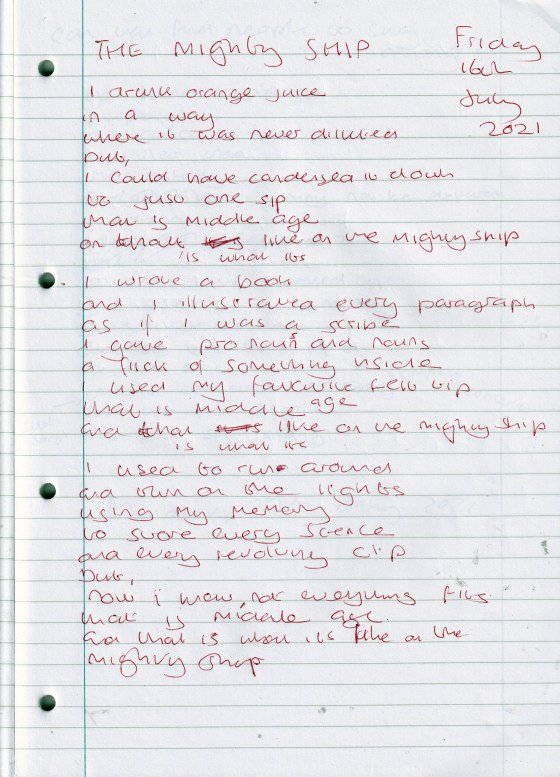 THE Mighty SHIP
Friday
16th
July
2021
I drunk orange juice
in a way
where it was never diluted
but,
I could have condensed it down
to just one sip
that is middle age
and that is what its like on the mighty ship
I wrote a book
and I illustrated every paragraph
as if I was a scribe
I gave pronouns and nouns
a flick of something inside
I used my favourite felt tip
that is middle age
and that is what its like on the mighty ship
I used to run around
and turn on the lights
using my memory
to store every science
and every revolving clip
but,
now I know not everything fits
that is middle age
and that is what its like on the
mighty ship